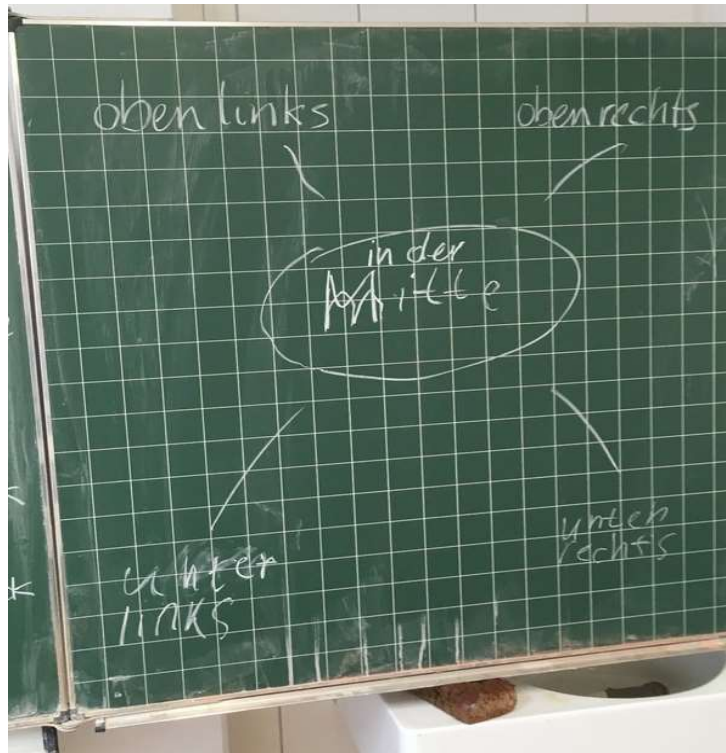 oben links
oben rechts
in der
Mitte
unter
links
unten
rechts